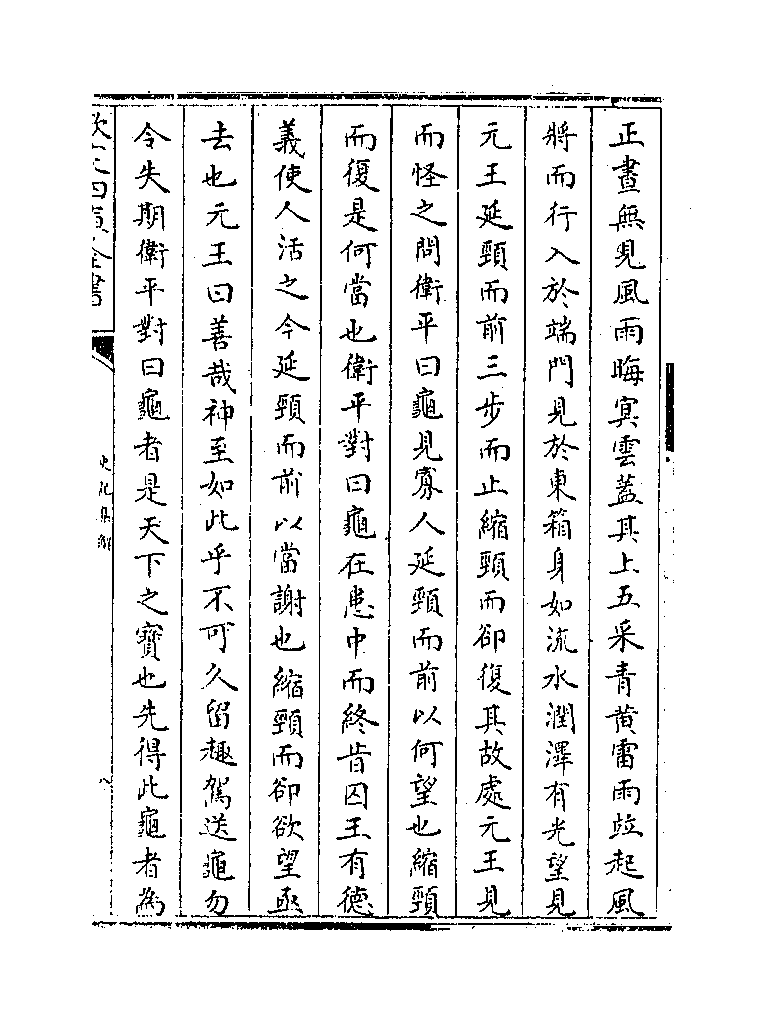 正晝無見風雨晦冥雲蓋其上五采青黄雷雨竝起風
將而行入於端門見於東箱身如流水潤澤有光望見
元王延頸而前三步而止縮頸而卻復其故處元王見
而怪之問衛平曰龜見寡人延頸而前以何望也縮頸
而復是何當也衛平對曰龜在患中而終昔囚王有德
義使人活之今延頸而前以當謝也縮頸而卻欲望亟
去也元王曰善哉神至如此乎不可久留趣駕送龜勿
令失期衛平對曰龜者是天下之寶也先得此龜者為
欽定四庫全書
史記集解
八